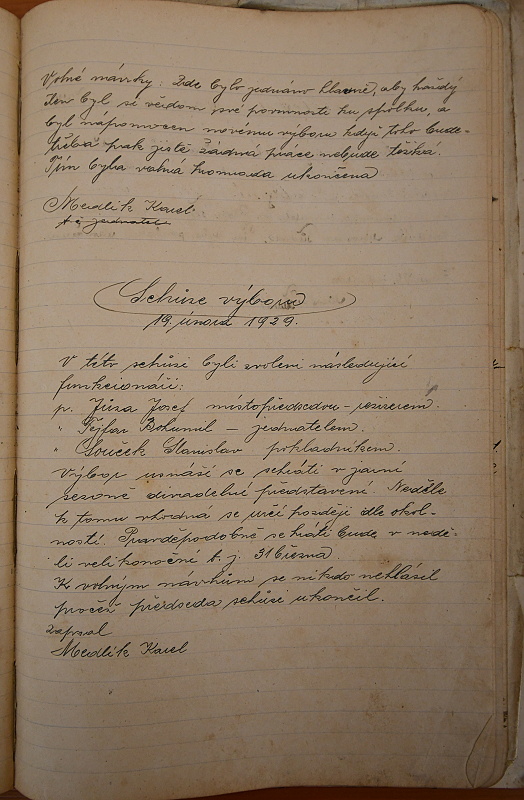 Volné návrhy: Zde bylo jednáno hlavně, aby každý
člen byl si vědom své povinnosti ku spolku, a
byl nápomocen novému výboru když toho bude
třeba pak jistě žádná práce nebude těžká.
Tím byla valná hromada ukončena
Medlík Karel
t. č. jednatel
Schůze výboru
19. února 1929.
V této schůzi byli zvoleni následující
funkcionáři:
p. Jůza Josef místopředsedou - režisérem.
" Pejfar Bohumil - jednatelem.
" Souček Stanislav pokladníkem.
Výbor usnáší se sehráti v jarní
sezoně divadelní představení. Neděle
k tomu vhodná se určí později dle okol-
ností. Pravděpodobně se hráti bude v nedě-
li velikonoční t. j. 31 března.
K volným návrhům se nikdo nehlásil
pročež předseda schůzi ukončil.
zapsal
Medlík Karel